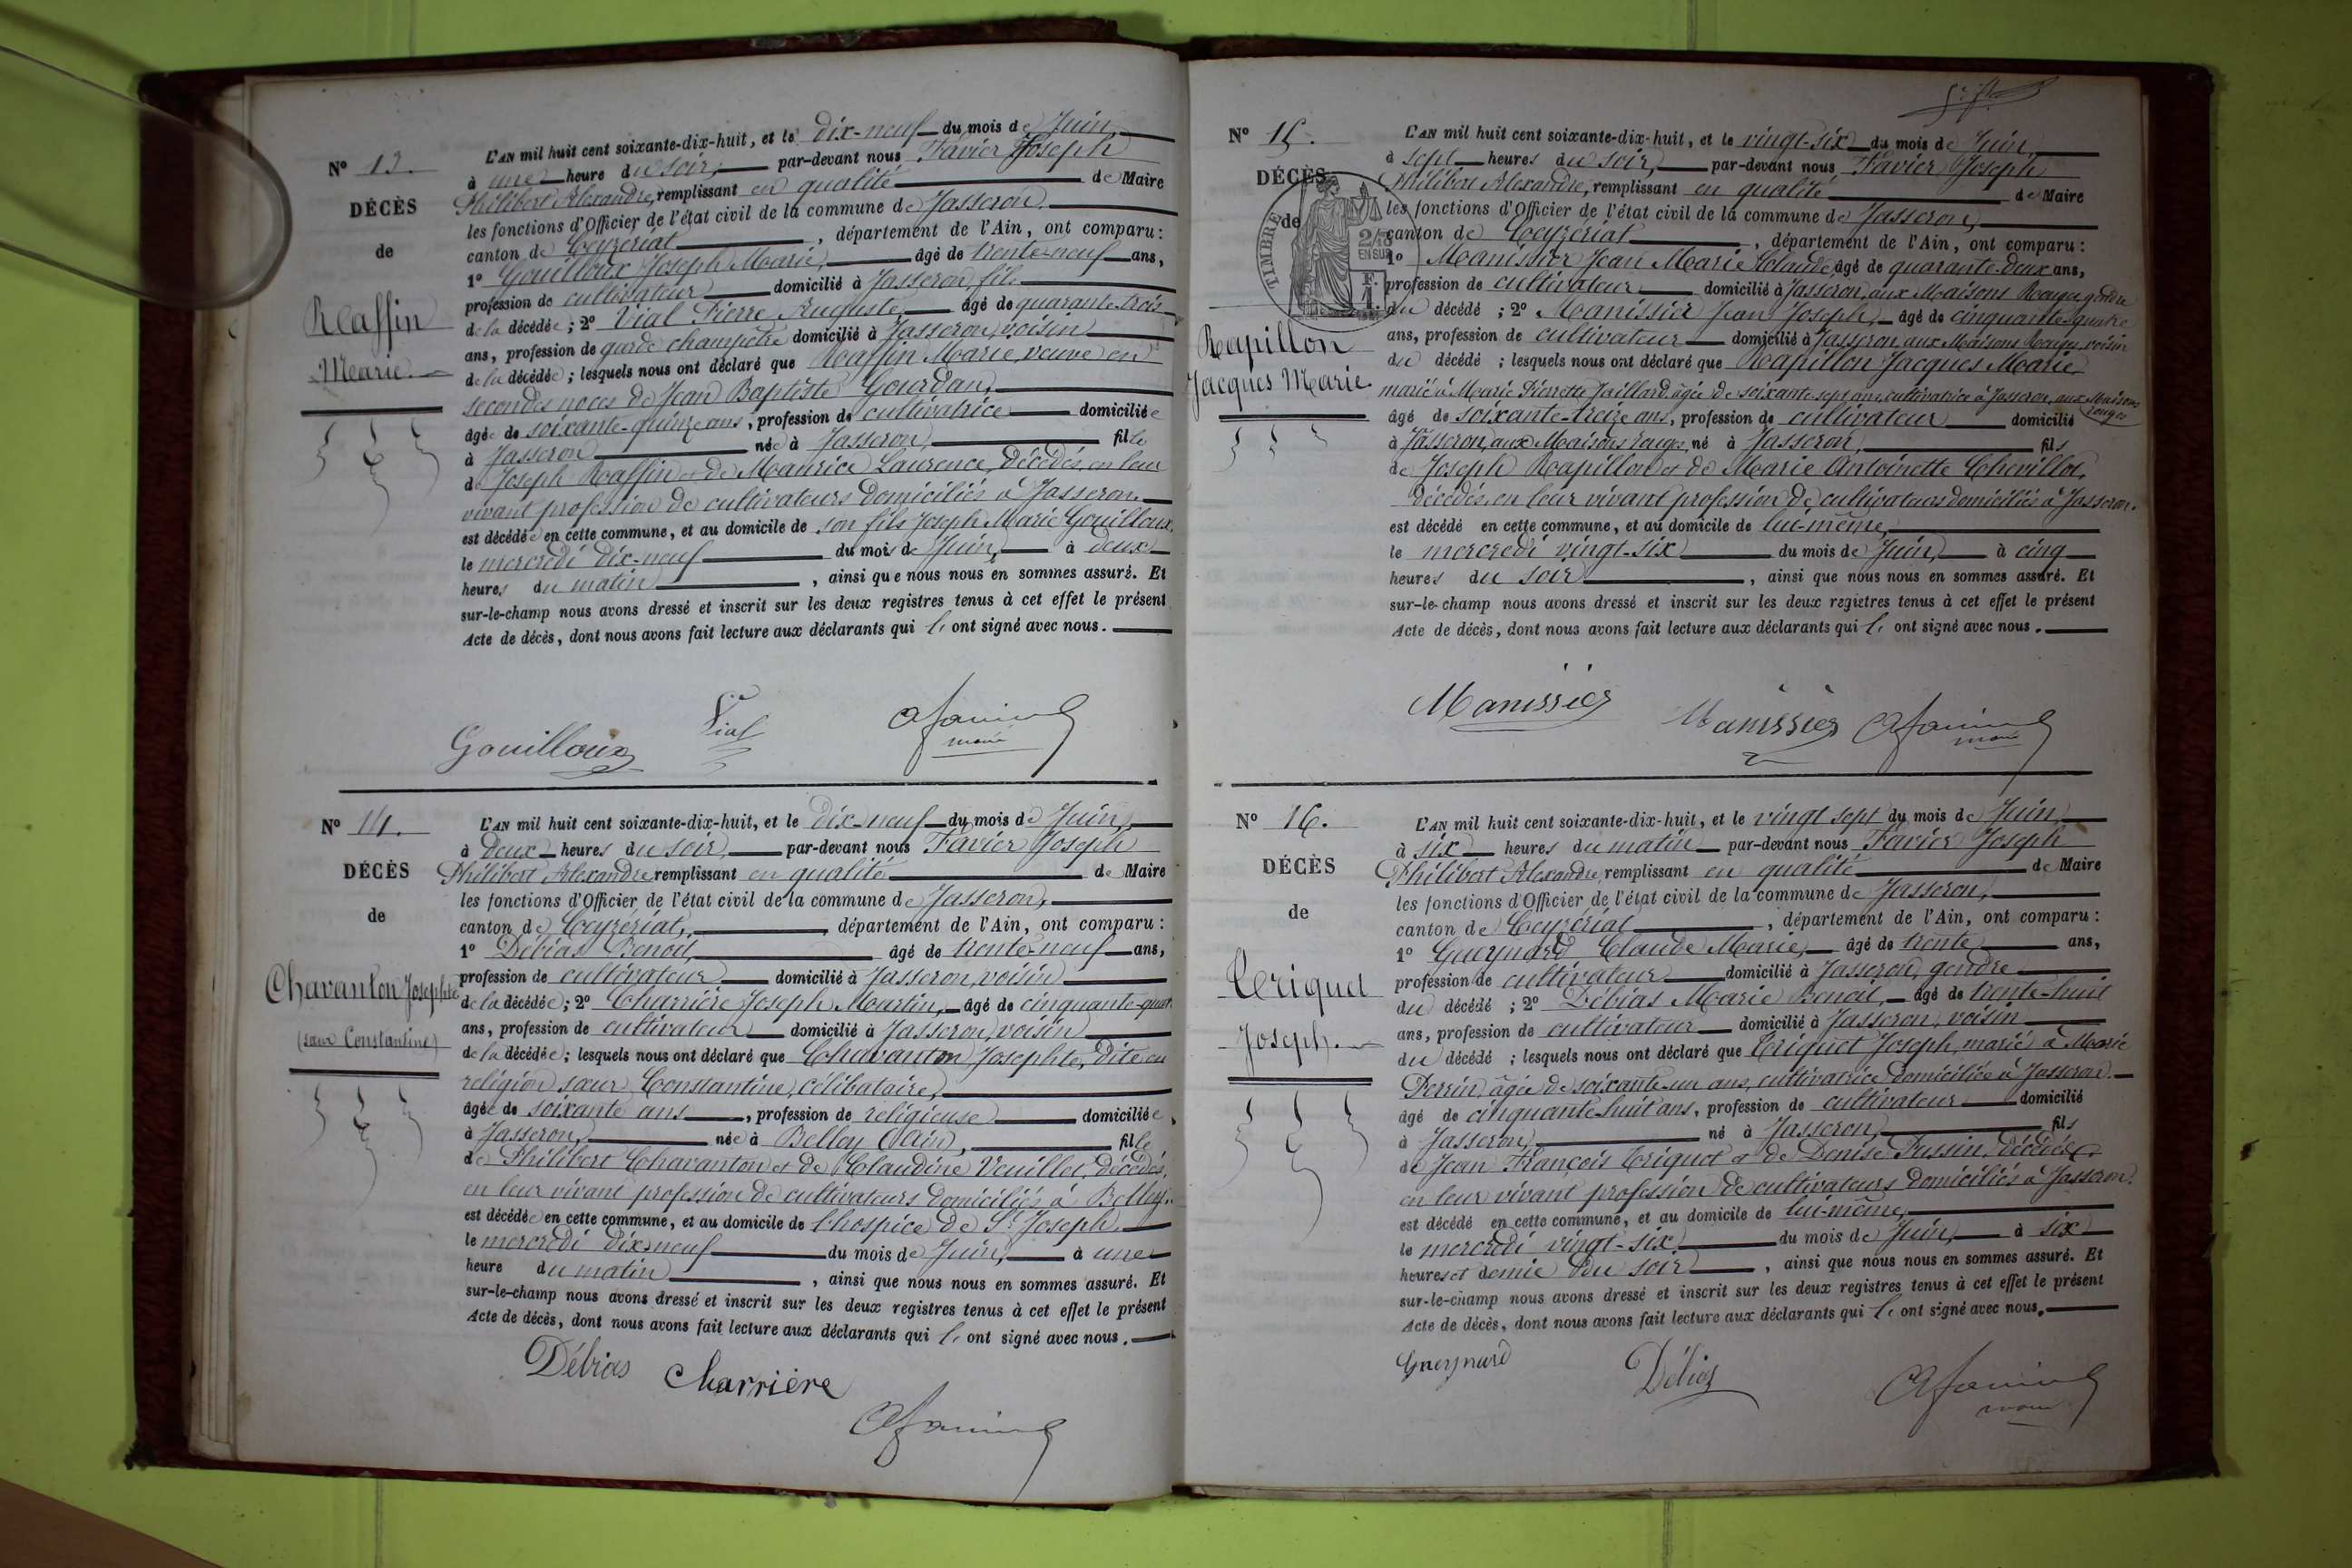 N° 13.
DÉCÈS
de
Raffin
Marie.
L'AN mil huit cent soixante-dix-huit, et le dix-neuf du mois de Juin,
à une heure du soir, par-devant nous Favier Joseph
Philibert Alexandre, remplissant en qualité de Maire
les fonctions d'Officier de l'état civil de la commune de Jasseron,
canton de Ceyzériat, département de l'Ain, ont comparu:
1° Gouilloux Joseph Marie, âgé de trente-neuf ans,
profession de cultivateur domicilié à Jasseron, fils
de la décédée; 2° Vial Pierre Auguste, âgé de quarante-trois
ans, profession de garde champêtre domicilié à Jasseron, voisin
de la décédée; lesquels nous ont déclaré que Raffin Marie, veuve en
secondes noces de Jean Baptiste Gourdan,
âgée de soixante-quinze ans, profession de cultivatrice domiciliée
à Jasseron née à Jasseron, fille
de Joseph Raffin et de Maurice Laurence, décédés, en leur
vivant profession de cultivateurs domiciliés à Jasseron
est décédée en cette commune, et au domicile de son fils Joseph Marie Gouilloux,
le mercredi dix-neuf du mois de Juin, à deux
heures du matin, ainsi que nous nous en sommes assuré. Et
sur-le-champ nous avons dressé et inscrit sur les deux registres tenus à cet effet le présent
Acte de décès, dont nous avons fait lecture aux déclarants qui l' ont signé avec nous.
Gouilloux Vial Afavier
maire
N° 14.
DÉCÈS
de
Chavanton Josephte
(sœur Constantine)
L'AN mil huit cent soixante-dix-huit, et le dix-neuf du mois de Juin,
à deux heures du soir, par-devant nous Favier Joseph
Philibert Alexandre remplissant en qualité de Maire
les fonctions d'Officier de l'état civil de la commune de Jasseron,
canton de Ceyzériat, département de l'Ain, ont comparu:
1° Débias Benoit, âgé de trente-neuf ans,
profession de cultivateur domicilié à Jasseron, voisin
de la décédée; 2° Charrière Joseph Martin, âgé de cinquante-quat.
ans, profession de cultivateur domicilié à Jasseron, voisin
de la décédée; lesquels nous ont déclaré que Chavanton Josephte, dite en
religion sœur Constantine, célibataire,
âgée de soixante ans, profession de religieuse domiciliée
à Jasseron, née à Belley (Ain), fille
de Philibert Chavanton et de Claudine Veuillet, décédés,
en leur vivant profession de cultivateurs domiciliés à Belley.
est décédée en cette commune, et au domicile de l'hospice de St Joseph
le mercredi dix-neuf du mois de Juin, à une
heure du matin, ainsi que nous nous en sommes assuré. Et
sur-le-champ nous avons dressé et inscrit sur les deux registres tenus à cet effet le présent
Acte de décès, dont nous avons fait lecture aux déclarants qui l' ont signé avec nous.
Débias Charrière
Afavier
N° 15.
DÉCÈS
de
TIMBRE
EN SUS
Rapillon
Jacques Marie
L'AN mil huit cent soixante-dix-huit, et le vingt-six du mois de Juin,
à sept heures du soir, par-devant nous Favier Joseph
Philibert Alexandre, remplissant en qualité de Maire
les fonctions d'Officier de l'état civil de la commune de Jasseron,
canton de Ceyzériat, département de l'Ain, ont comparu:
1° Manissier Jean Marie Claude, âgé de quarante-deux ans,
profession de cultivateur domicilié à Jasseron, aux Maisons Rouges, gendre
du décédé; 2° Manissier Jean Joseph, âgé de cinquante-quatre
ans, profession de cultivateur domicilié à Jasseron aux Maisons Rouges, voisin
du décédé; lesquels nous ont déclaré que Rapillon Jacques Marie
marié à Marie Pierrette Jaillard, âgée de soixante-sept ans, cultivatrice à Jasseron, aux Maisons
rouges
âgé de soixante-treize ans, profession de cultivateur domicilié
à Jasseron, aux Maisons rouges, né à Jasseron, fils
de Joseph Rapillon et de Marie Antoinette Chevillot,
décédés, en leur vivant profession de cultivateurs domiciliés à Jasseron.
est décédé en cette commune, et au domicile de lui-même,
le mercredi vingt-six du mois de Juin, à cinq
heures du soir, ainsi que nous nous en sommes assuré. Et
sur-le-champ nous avons dressé et inscrit sur les deux registres tenus à cet effet le présent
Acte de décès, dont nous avons fait lecture aux déclarants qui l' ont signé avec nous.
Manissier Manissier Afavier
maire
N° 16.
DÉCÈS
de
Criquet
Joseph.
L'AN mil huit cent soixante-dix-huit, et le vingt sept du mois de Juin,
à six heures du matin par-devant nous Favier Joseph
Philibert Alexandre, remplissant en qualité de Maire
les fonctions d'Officier de l'état civil de la commune de Jasseron,
canton de Ceyzériat, département de l'Ain, ont comparu:
1° Gueynard Claude Marie, âgé de trente ans,
profession de cultivateur domicilié à Jasseron, gendre
du décédé; 2° Débias Marie Benoit, âgé de trente-huit
ans, profession de cultivateur domicilié à Jasseron, voisin
du décédé; lesquels nous ont déclaré que Criquet Joseph, marié à Marie
Perrin, âgée de soixante-un ans, cultivatrice domiciliée à Jasseron.
âgé de cinquante-huit ans, profession de cultivateur domicilié
à Jasseron, né à Jasseron, fils
de Jean François Criquet et de Denise Fussin, décédés
en leur vivant profession de cultivateurs domiciliés à Jasseron.
est décédé en cette commune, et au domicile de lui-même,
le mercredi vingt-six, du mois de Juin, à six
heures et demie du soir, ainsi que nous nous en sommes assuré. Et
sur-le-champ nous avons dressé et inscrit sur les deux registres tenus à cet effet le présent
Acte de décès, dont nous avons fait lecture aux déclarants qui l' ont signé avec nous.
Gueynard Débias Afavier
maire